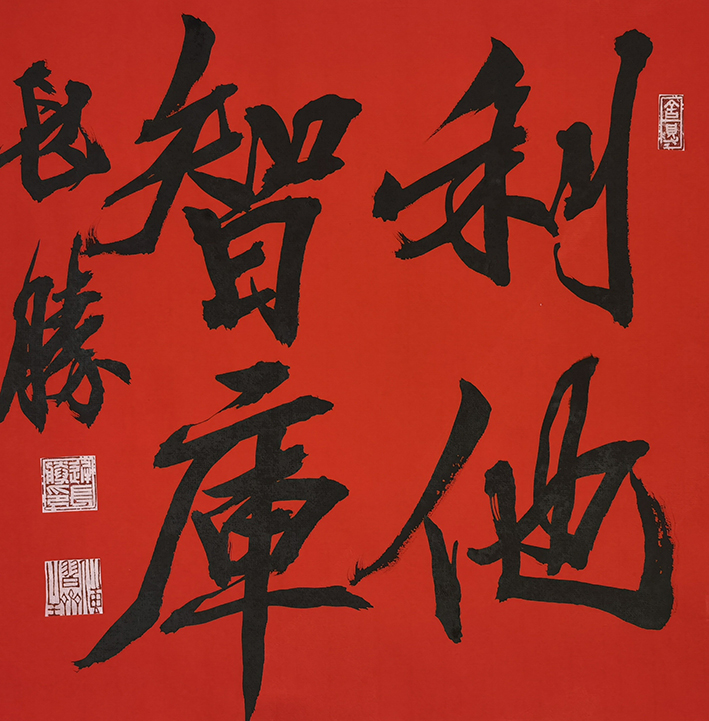 利他
智庫
長勝